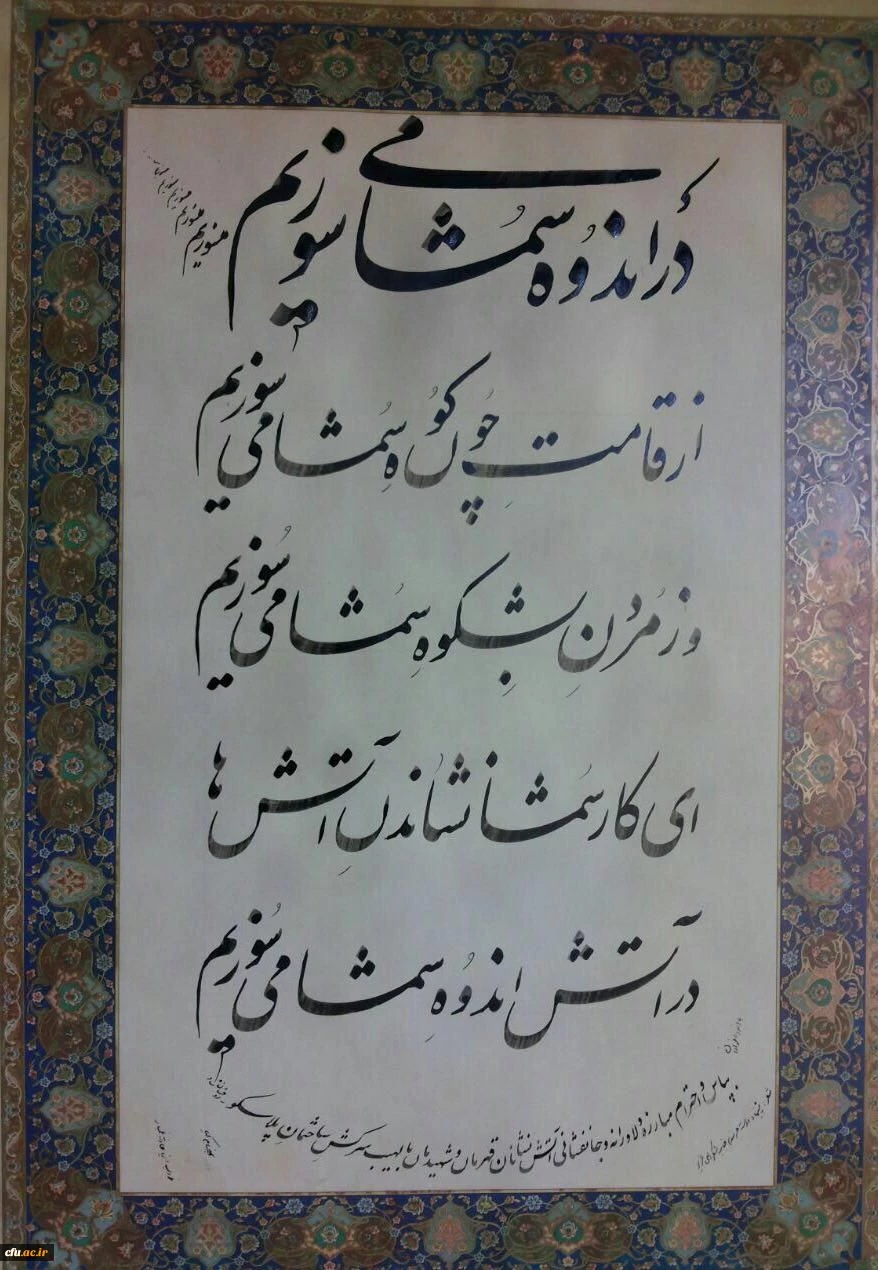 در اندوه شما می‌سوزیم
میسوزیم
از قامتِ چون کوهِ شما می‌سوزیم
وز مردنِ بشکوهِ شما می‌سوزیم
ای کار شما نشاندنِ آتش ها
در آتش اندوهِ شما می‌سوزیم
بپاس و احترام مبارزه دلاورانه و جانفشانی آتش نشانان قهرمان و شهیدمان با لهیب سرکش ساختمان پلاسکو
cfu.ac.ir